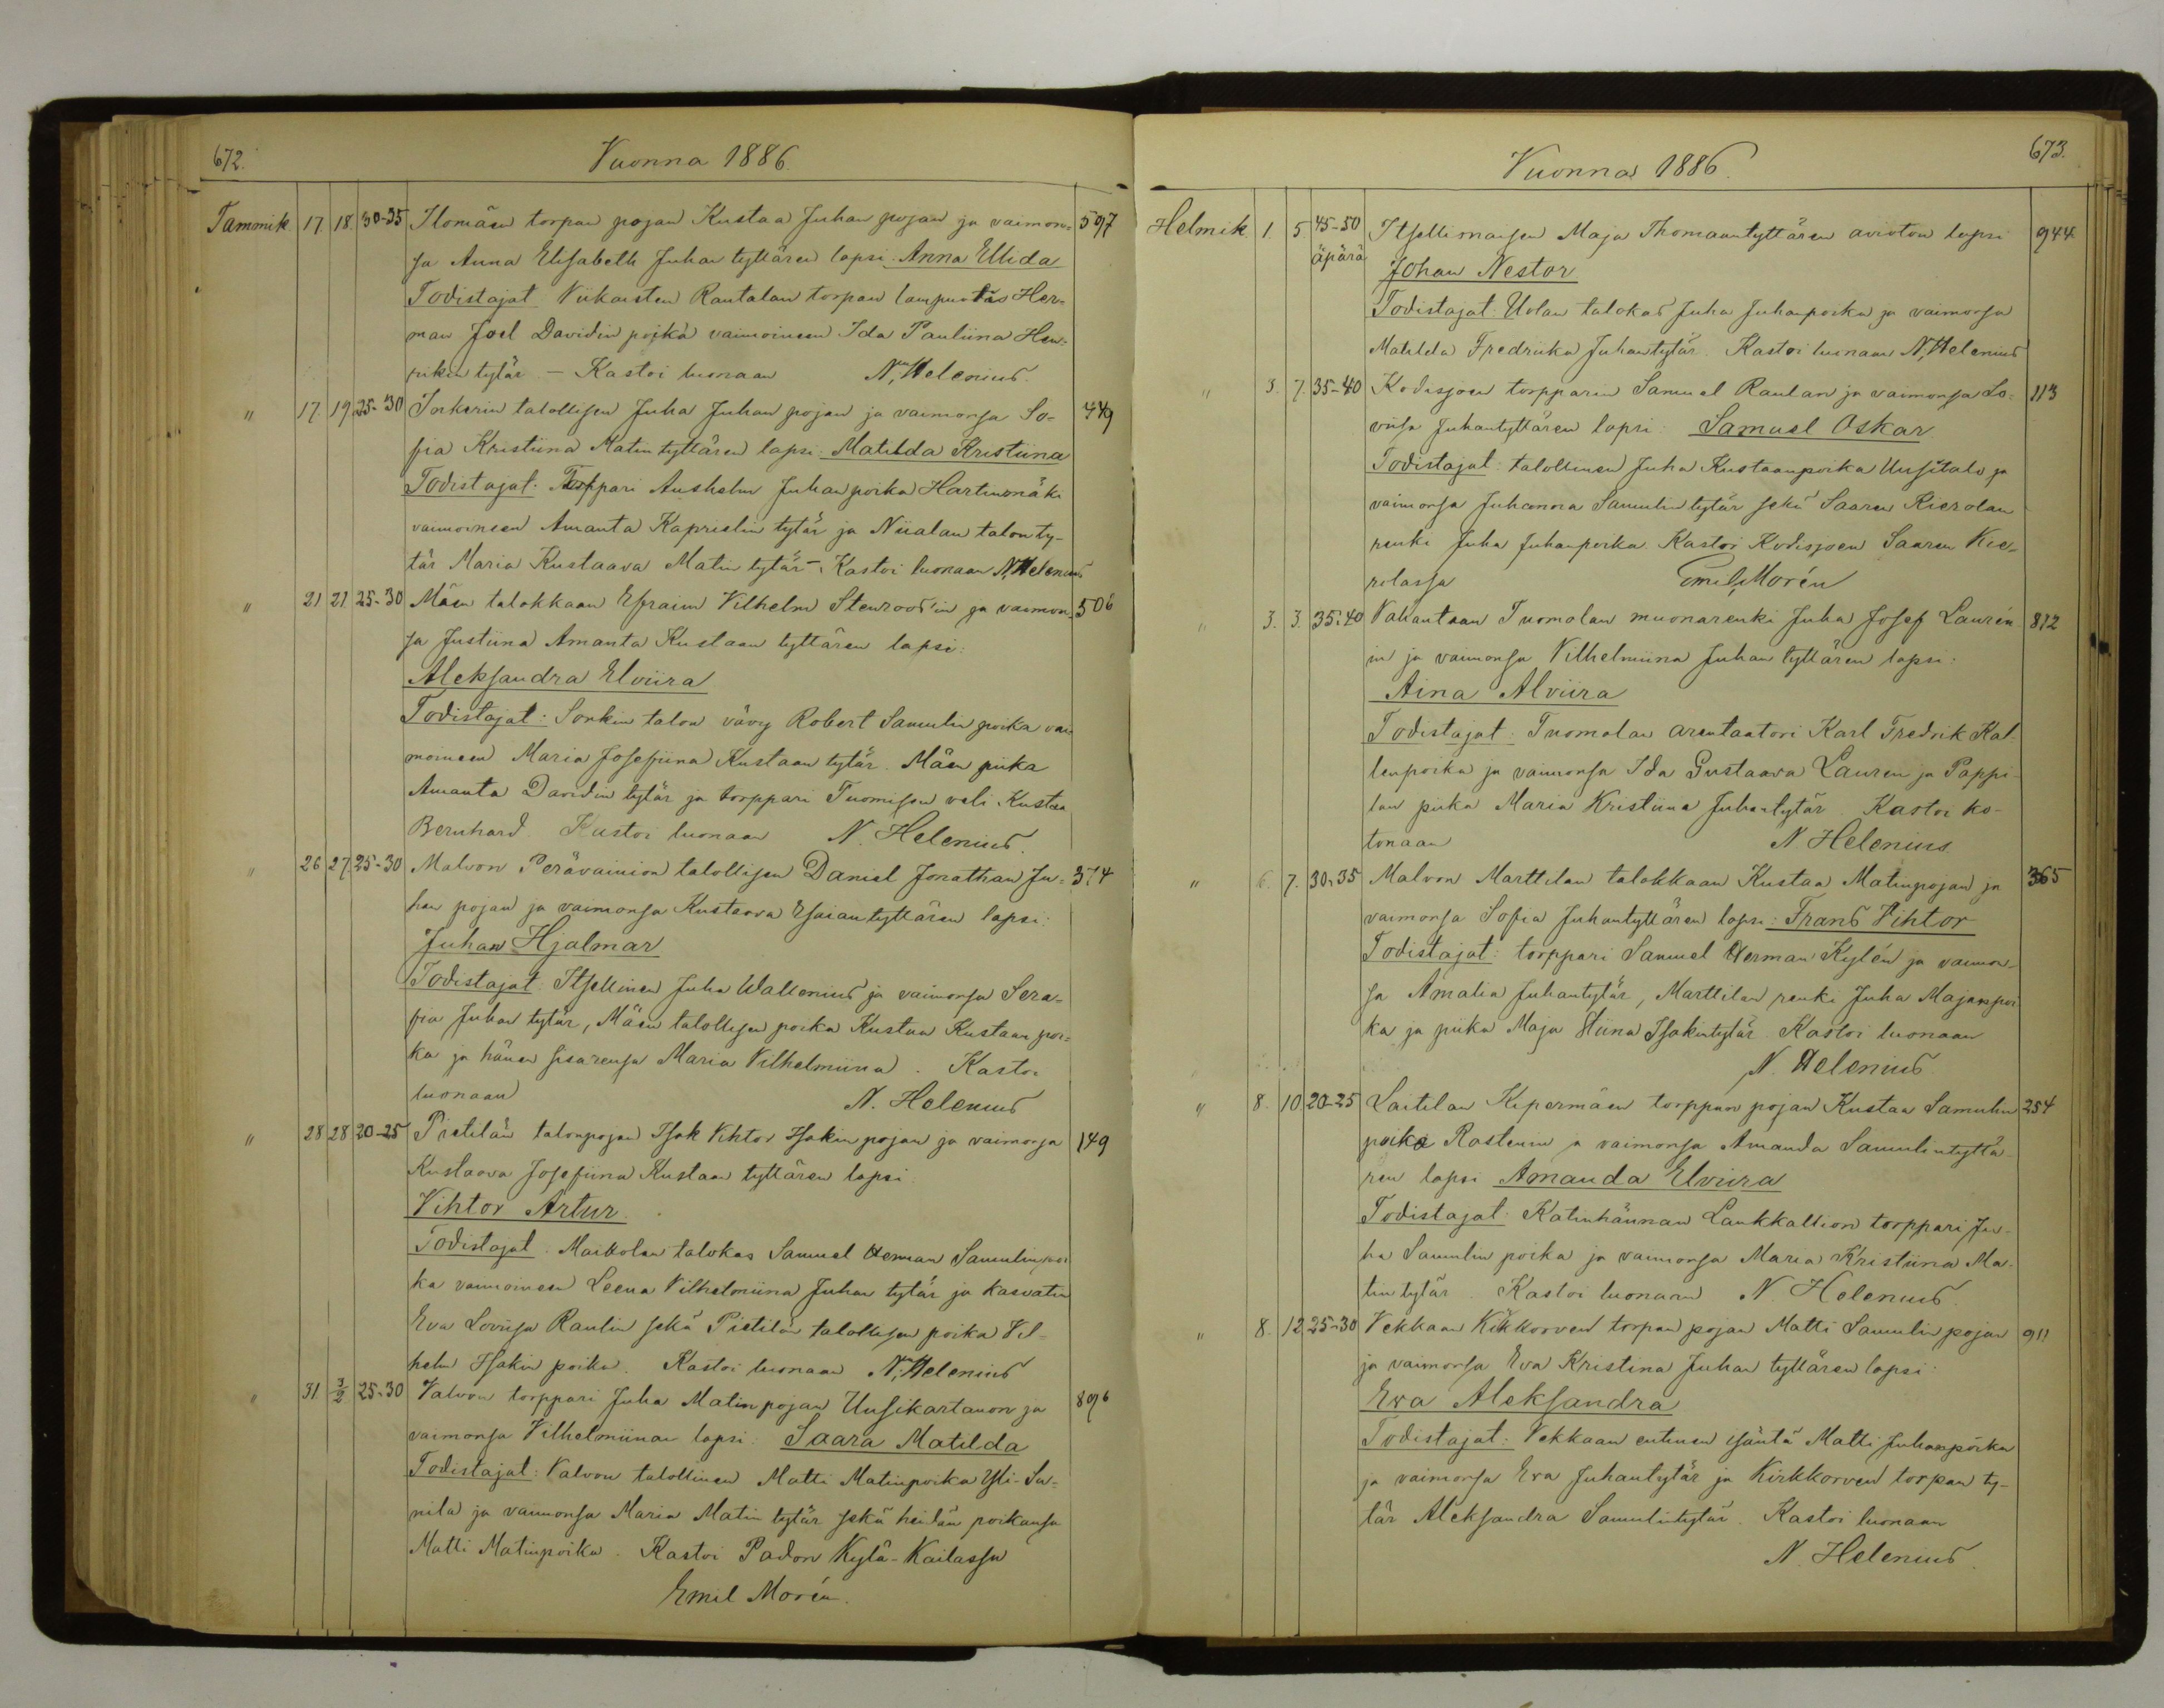 672. Vuonna 1886.
Tammik. 17. 18. 30-35 Ilomäen torpan pojan Kustaa Juhan pojan ja vaimon= 597
sa Anna Elisabeth Juhan tyttären lapsi: Anna Ellida
Todistajat Viikaisten Rantalan torpan lampuotis Her=
man Joel Davidin poika vaimoineen Ida Pauliina Hen=
rikin tytär — Kastoi luonaan N. Helenius.
" 17. 19. 25-30 Sorkerin talollisen Juha Juhan pojan ja vaimonsa So= 449
fia Kristiina Matin tyttären lapsi: Matilda Kristiina
Todistajat: Torppari Anshelm Juhan poika Hartinmäki
vaimoinsen Amanta Kaprielin tytär ja Niialan talon ty-
tär Maria Kustaava Matin tytär –. Kastoi luonaan N. Helenius
" 21 21 25-30 Mäen talokkaan Efraim Vilhelm Stenroos'in ja vaimon- 506
sa Justiina Amanta Kustaan tyttären lapsi:
Aleksandra Elviira
Todistajat: Sorkin talon vävy Robert Samulin poika vai
moineen Maria Josefiina Kustaan tytär. Mäen piika
Amanta Davidin tytär ja torppari Tuomisen veli Kustaa
Bernhard. Kastoi luonaan N. Helenius.
" 26 27. 25-30 Malvon Perävainion talollisen Daniel Jonathan Ju= 374
han pojan ja vaimonsa Kustaava Esaian tyttären lapsi:
Juhan Hjalmar
Todistajat: Itsellinen Juha Wallenius ja vaimonsa Sera=
fia Juhan tytär, Mäen talollisen poika Kustaa Kustaan poi=
ka ja hänen sisarensa Maria Vilhelmiina. Kastoi
luonaan N. Helenius
" 28 28 20-25 Pietilän talonpojan Isak Vihtor Isakin pojan ja vaimonsa 149
Kustaava Josefiina Kustaan tyttären lapsi:
Vihtor Artur.
Todistajat: Maikolan talokas Samuel Herman Samulin poi
ka vaimoineen Leena Vilhelmiina Juhan tytär ja kasvatin
Eva Loviisa Raulin sekä Pietilän talollisen poika Vil-
helm Isakin poika. Kastoi luonaan N. Helenius
" 31. 3/2 25-30 Valvon torppari Juha Matin pojan Uusikartanon ja 896
vaimonsa Vilhelmiinan lapsi: Saara Matilda
Todistajat: Valvon talollinen Matti Matinpoika Yli-Su=
nila ja vaimonsa Maria Matin tytär sekä heidän poikansa
Matti Matinpoika. Kastoi Padon Kylä-Kailassa
Emil Morén.
Vuonna 1886. 673.
Helmik 1. 5. 45-50 Itsellismaisen Maja Thomaantyttären avioton lapsi 944
äpärä Johan Nestor
Todistajat: Uolan talokas Juha Juhanpoika ja vaimonsa
Matilda Fredriika Juhantytär. Kastoi luonaan N. Helenius
" 3. 7. 35-40 Kodisjoen torpparin Samuel Raulan ja vaimonsa Lo- 113
viisa Juhantyttären lapsi: Samuel Oskar
Todistajat: talollinen Juha Kustaanpoika Uusitalo ja
vaimonsa Juhanna Samulin tytär sekä Saaren Kierolan
renki Juha Juhanpoika. Kastoi Kodisjoen Saaren Kie-
rolassa Emil Morén
" 3. 3. 35-40 Vakantaan Tuomolan muonarenki Juha Josef Laurén 812
in ja vaimonsa Vilhelmiina Juhan tyttären lapsi:
Aina Alviira
Todistajat: Tuomolan arentaatori Karl Fredrik Kal-
lenpoika ja vaimonsa Ida Gustaava Lauren ja Pappi-
lan piika Maria Kristiina Juhantytär. Kastoi ko-
tonaan N. Helenius
" 6. 7. 30-35 Malvon Marttilan talokkaan Kustaa Matinpojan ja 365
vaimonsa Sofia Juhantyttären lapsi: Frans Vihtor
Todistajat: torppari Samuel Herman Kylén ja vaimon-
sa Amalia Juhantytär, Marttilan renki Juha Majanpoi
ka ja piika Maja Stiina Isakintytär. Kastoi luonaan
N. Helenius.
" 8. 10. 20-25 Laitilan Kipermäen torppan pojan Kustaa Samulin 254
poika Rostenin ja vaimonsa Amanda Samulintyttä-
ren lapsi Amanda Elviira
Todistajat: Katinhännan Laukkallion torppari Ju-
ha Samulin poika ja vaimonsa Maria Kristiina Ma-
tin tytär. Kastoi luonaan N. Helenius.
" 8. 12 25-30 Vekkaan Kirkkorven torpan pojan Matti Samulin pojan 911
ja vaimonsa Eva Kristina Juhan tyttären lapsi:
Ewa Aleksandra
Todistajat: Vekkaan entinen isäntä Matti Juhanpoika
ja vaimonsa Eva Juhantytär ja Kirkkorven torpan ty-
tär Aleksandra Samulintytär. Kastoi luonaan
N. Helenius.